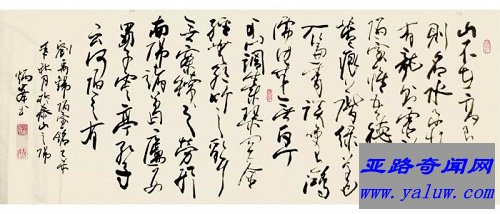 山不在高
则名水不
有龙则灵
陋室惟吾德
苔痕上阶绿草色
入帘青谈笑有鸿
儒往来无白丁
可以调素琴阅金
经无丝竹之乱
耳无案牍之劳形
南阳诸葛庐西
蜀子云亭孔子
云何陋之有
刘禹锡陋室铭
秋月於泰山之阳
书
亚路奇闻网
www.yaluw.com